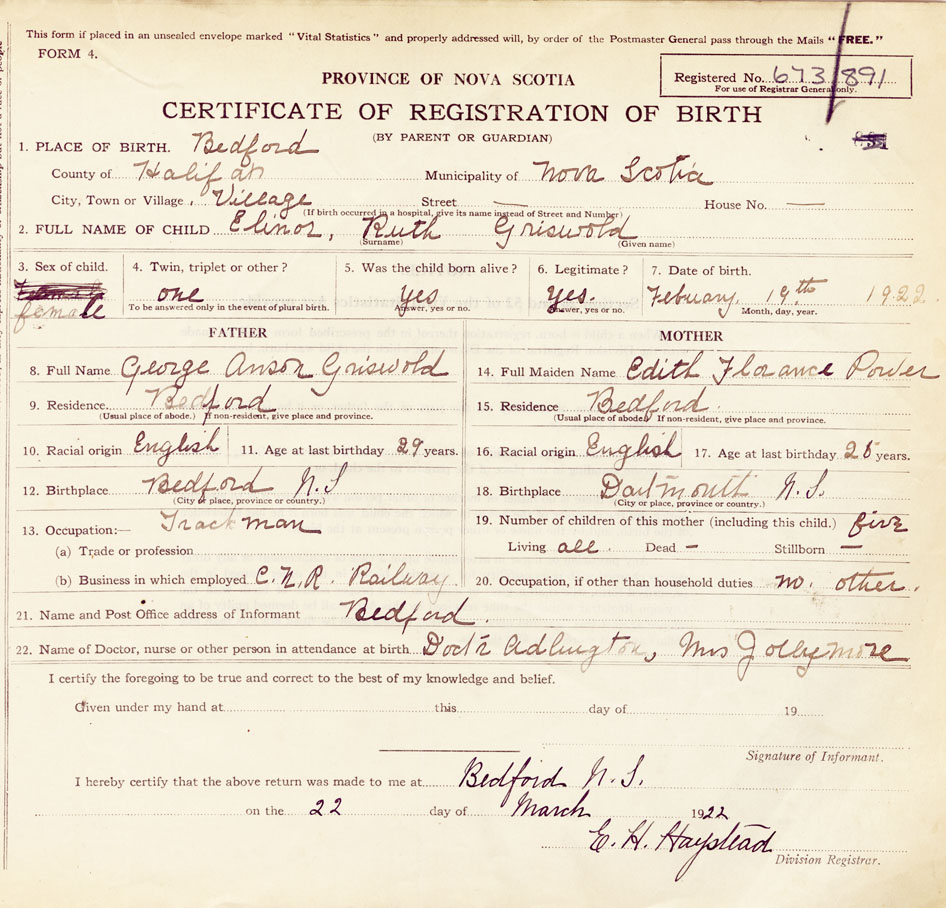 This form if placed in an unsealed envelope marked "Vital Statistics" and properly addressed will, by order of the Postmaster General pass through the Mails "FREE."
FORM 4.
PROVINCE OF NOVA SCOTIA
Registered No. 673/891
For use of Registrar General only.
CERTIFICATE OF REGISTRATION OF BIRTH
(BY PARENT OR GUARDIAN)
1. PLACE OF BIRTH. Bedford
County of Halifax Municipality of Nova Scotia
City, Town or Village Village Street — House No. —
(If birth occurred in a hospital, give its name instead of Street and Number)
2. FULL NAME OF CHILD Elinor, Ruth Griswold
(Surname) (Given name)
3. Sex of child. 4. Twin, triplet or other? 5. Was the child born alive? 6. Legitimate? 7. Date of birth.
female one yes yes. Febuary 19th 1922.
To be answered only in the event of plural birth. Answer, yes or no. Answer, yes or no. Month, day, year.
FATHER MOTHER
8. Full Name George Anson Griswold 14. Full Maiden Name Edith Florance Power
9. Residence Bedford 15. Residence Bedford.
(Usual place of abode.) If non-resident, give place and province. (Usual place of abode) If non-resident, give place and province.
10. Racial origin English 11. Age at last birthday 29 years. 16. Racial origin English 17. Age at last birthday years.
12. Birthplace Bedford N.S 18. Birthplace Dartmouth N.S.
(City or place, province or country.) (City or place, province or country.)
13. Occupation:— Trackman 19. Number of children of this mother (including this child.) five
(a) Trade or profession Living all. Dead — Stillborn —
(b) Business in which employed C.N.R. Railway 20. Occupation, if other than household duties no. other.
21. Name and Post Office address of Informant Bedford.
22. Name of Doctor, nurse or other person in attendance at birth Doctr Adlington, Mrs Jollymore
I certify the foregoing to be true and correct to the best of my knowledge and belief.
Given under my hand at this day of 19
Signature of Informant.
I hereby certify that the above return was made to me at Bedford N.S.
on the 22 day of March 1922
E. H. Haystead
Division Registrar.